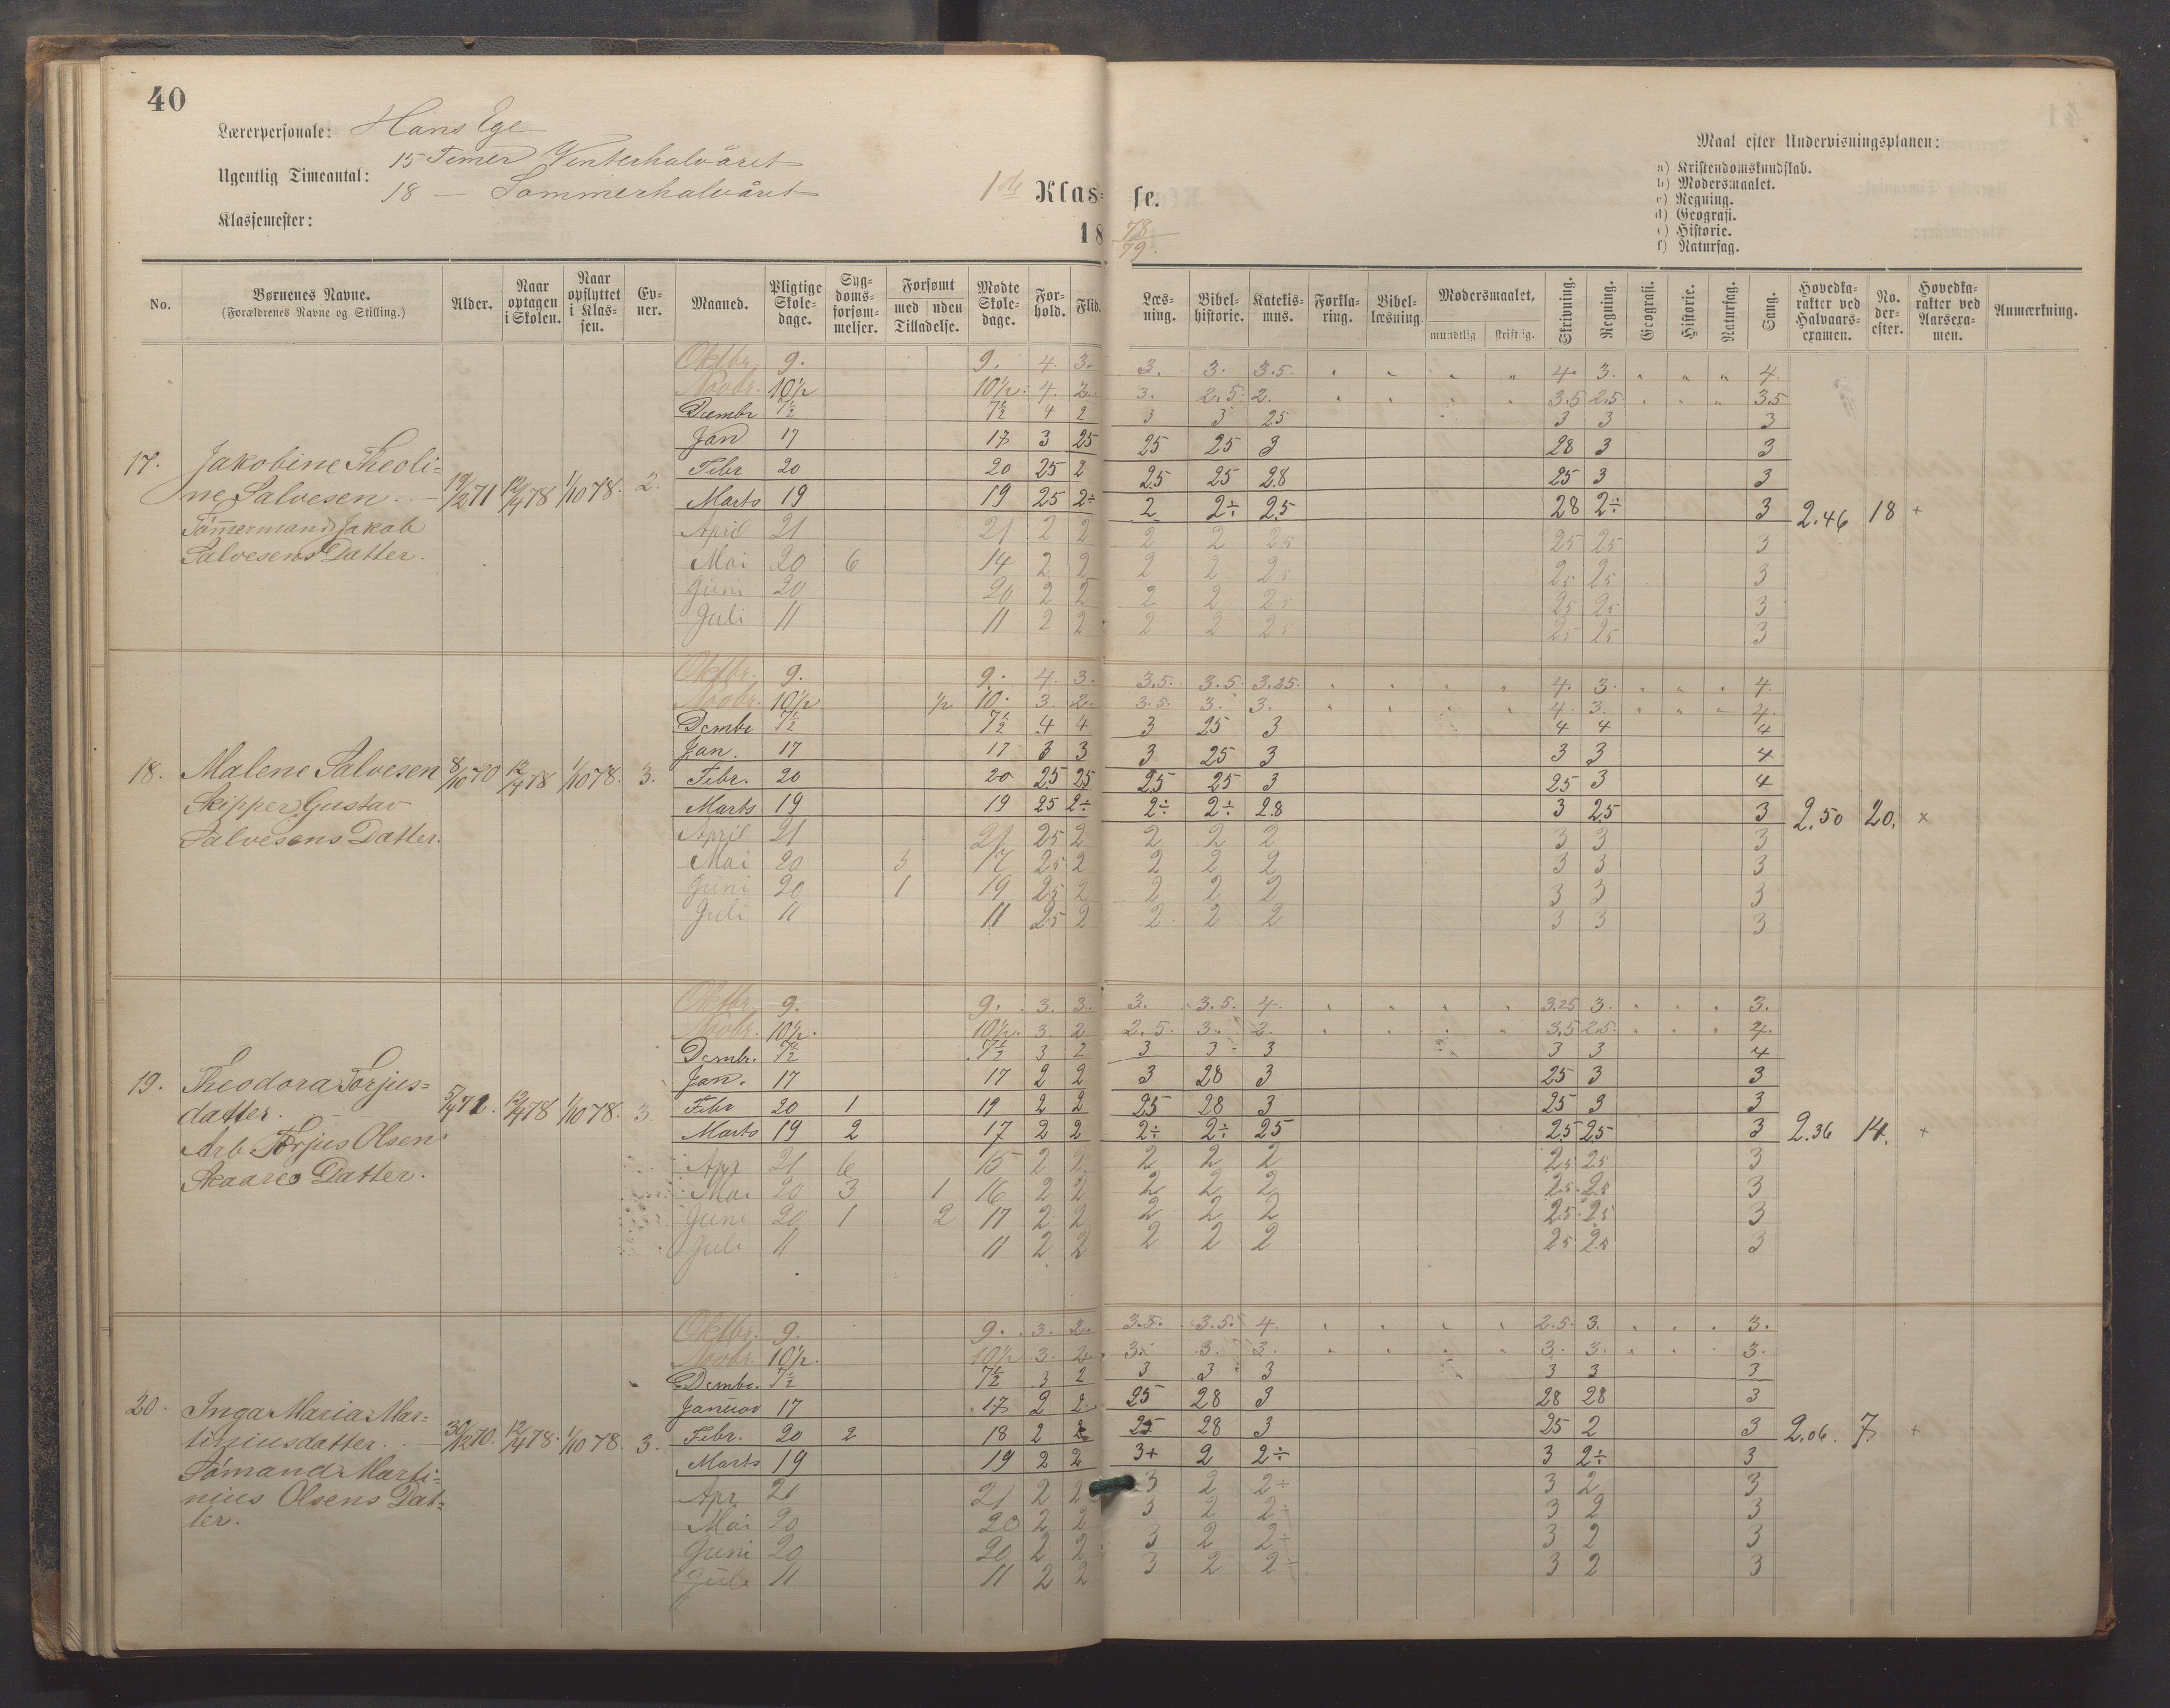 40
Lærerpersonale: Hans Ege
Ugentlig Timeantal: 15 Timer Vinterhalvåret
18 — Sommerhalvåret
Klassemester:
1ste Klas= se.
18 78/79.
Maal efter Undervisningsplanen:
a) Kristendomskundskab.
b) Modersmaalet.
c) Regning.
d) Geografi.
e) Historie.
f) Naturfag.
No. | Børnenes Navne. (Forældrenes Navne og Stilling.) | Alder. | Naar optagen i Skolen. | Naar opflyttet i Klas- sen. | Ev- ner. | Maaned. | Pligtige Skole- dage. | Syg- doms- forsøm- melser. | Forsømt med uden Tilladelse. | Mødte Skole- dage. | For- hold. | Flid. | Læs- ning. | Bibel- historie. | Katekis- mus. | Forkla- ring. | Bibel- læsning. | Modersmaalet, mundtlig skriftlig. | Skrivning. | Regning. | Geografi. | Historie. | Naturfag. | Sang. | Hovedka- rakter ved Halvaars- examen. | No. der- efter. | Hovedka- rakter ved Aarsexa- men. | Anmærkning.
17. Jakobine Theoli= ne Salvesen. 19/2 71 12/4 78 1/10 78. 2.
Tømmermand Jakob
Salvesens Datter.
Oktbr. 9. 9. 4. 3. 3. 3. 3.5. 4. 3. 4.
Novbr. 10½ 10½. 4. 2. 3. 2.5. 2. 3.5 2.5. 3.5
Decmbr 7½ 7½ 4 2 3 3 25 3 3 3
Jan 17 17 3 25 25 25 3 28 3 3
Febr 20 20 25 2 25 25 28 25 3 3
Marts 19 19 25 2÷ 2 2÷ 25 28 2÷ 3 2.46 18 +
April 21 21 2 2 2 2 25 25 25 3
Mai 20 6 14 2 2 2 2 25 25 25 3
Juni 20 20 2 2 2 2 25 25 25 3
Juli 11 11 2 2 2 2 25 25 25 3
18. Malene Salvesen 8/10 70 12/4 78 1/10 78. 3.
Skipper Gustav
Salvesens Datter.
Oktbr. 9. 9. 4. 3. 3.5. 3.5. 3.25. 4. 3. 4.
Novbr. 10½ ½ 10. 3. 2. 3.5. 3. 3. 4. 3. 4.
Dcmbr 7½ 7½ 4 4 3 25 3 4 4 4
Jan. 17 17 3 3 3 25 3 3 3 4
Febr. 20 20 25 25 25 25 3 25 3 4
Marts 19 19 25 2÷ 2÷ 2÷ 28 3 25 3 2.50 20. x
April 21 21 25 2 2 2 2 3 3 3
Mai 20 3 17 25 2 2 2 2 3 3 3
Juni 20 1 19 25 2 2 2 2 3 3 3
Juli 11 11 25 2 2 2 2 3 3 3
19. Theodora Torjus=
datter. 12/4 78 1/10 78. 3.
Arb. Torjus Olsen
Skaares Datter.
Oktbr. 9. 9. 3. 3. 3. 3.5. 4. 3.25 3. 3.
Novbr. 10½. 10½. 3. 2 2.5. 3. 2. 3.5 2.5. 4.
Dcmbr. 7½ 7½ 3 2 3 3 3 3 3 4
Jan. 17 17 2 2 3 28 3 25 3 3
Febr 20 1 19 2 2 25 28 3 25 3 3
Marts 19 2 17 2 2 2÷ 2÷ 25 25 25 3 2.36 14. +
Apr 21 6 15 2 2 2 2 2 25 25 3
Mai 20 3 1 16 2 2 2 2 2 25 25 3
Juni 20 1 2 17 2 2 2 2 2 25 25 3
Juli 11 11 2 2 2 2 2 25 25 3
20. Inga Maria Mar=
tiniusdatter. 30/12 70. 12/4 78. 1/10 78. 3.
Sømand Marti=
nius Olsens Dat=
ter.
Oktbr. 9. 9. 3. 2. 3.5. 3.5. 4. 2.5. 3. 3.
Novbr 10½. 10½ 3. 2. 3. 3. 3. 3. 3. 3.
Dcmbr. 7½ 7½ 3 2 3 3 3 3 3 3
Januar 17 17 2 2 25 28 3 28 28 3
Febr. 20 2 18 2 2 25 28 3 25 2 3 2.06. 7. +
Marts 19 19 2 2 3+ 2 2÷ 3 2÷ 3
Apr 21 21 2 2 3 2 2÷ 3 2 3
Mai 20 20 2 2 3 2 2÷ 3 2 3
Juni 20 20 2 2 3 2 2÷ 3 2 3
Juli 11 11 2 2 3 2 2÷ 3 2 3